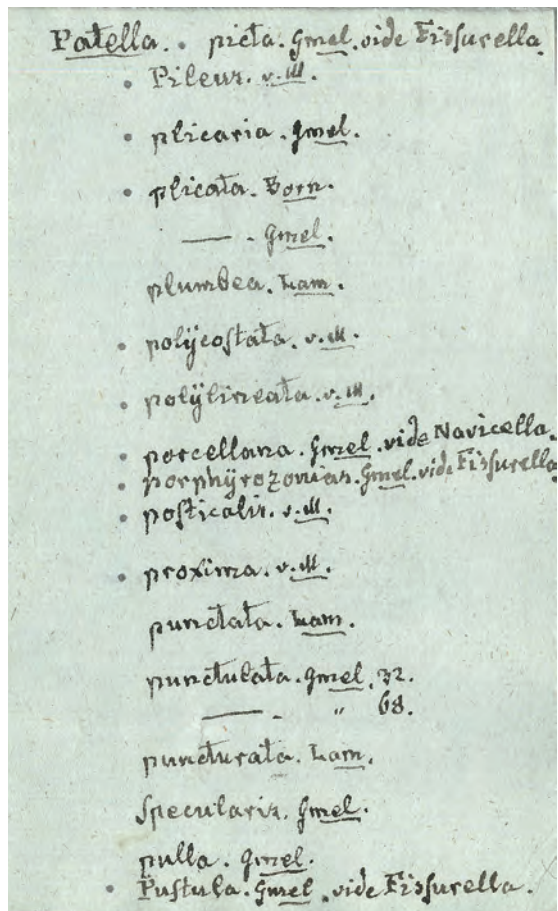 Patella. • picta. Gmel. vide Fiſsurella.
• Pileus. v. M.
• plicaria. Gmel.
• plicata. Born.
— . Gmel.
plumbea. Lam.
• polÿcoſtata. v. M.
• polÿlineata. v. M.
• porcellana. Gmel. vide Navicella.
• porphÿrozonias. Gmel. vide Fiſsurella
• poſticalis. v. M.
• proxima. v. M.
punctata. Lam.
punctulata. Gmel. 32.
— . " 68.
puncturata. Lam.
Specularis. Gmel.
pulla. Gmel.
• Puſtula. Gmel. vide Fiſsurella.